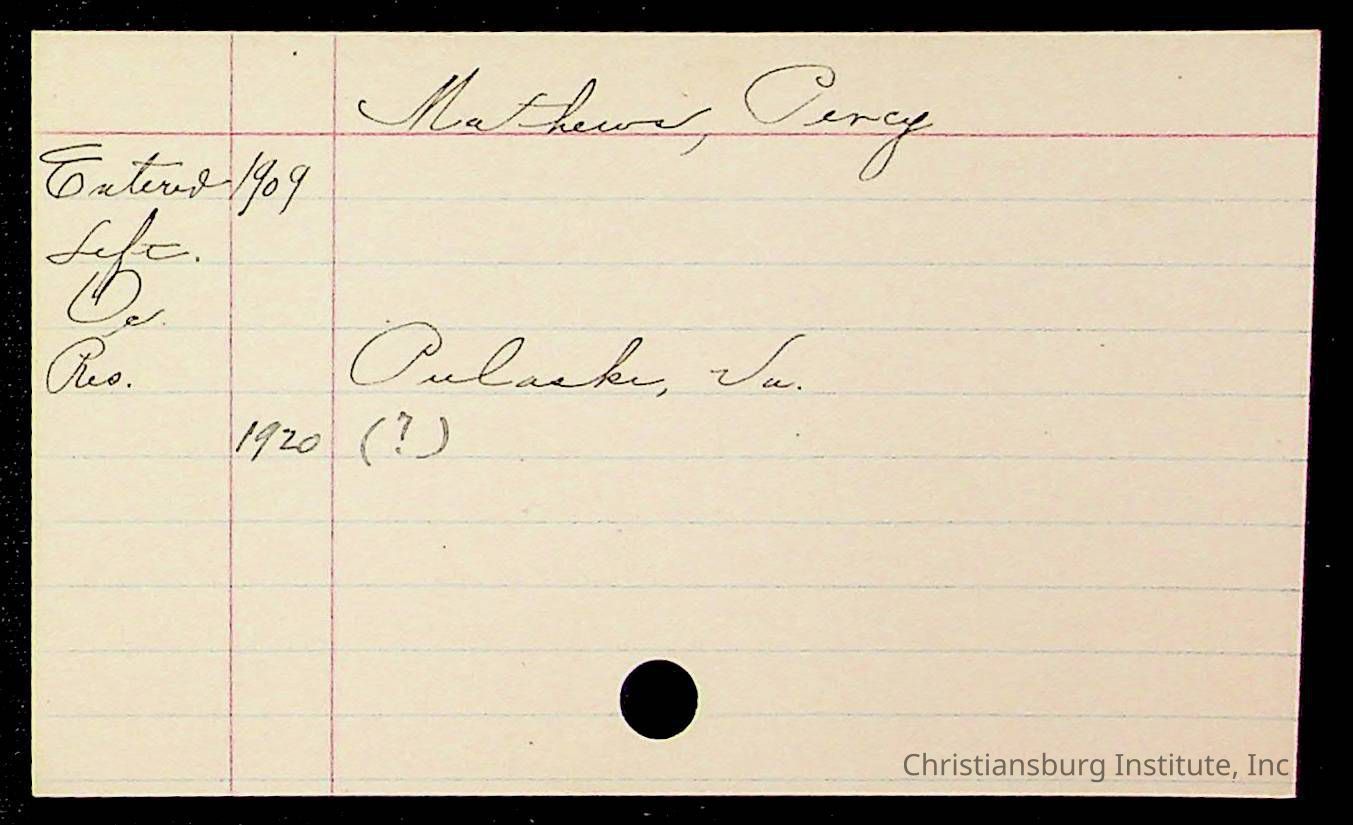 Mathews, Percy
Entered 1909
Left.
Oc.
Res. Pulaski, Va.
1920 (?)
Christiansburg Institute, Inc